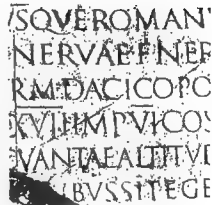 SQVE·ROMANV
NERVAE·F·NER
RM·DACICO·PO
XVII·IMP·VI·COS
VANTAE·ALTITVD
BVS·SIT·EGE